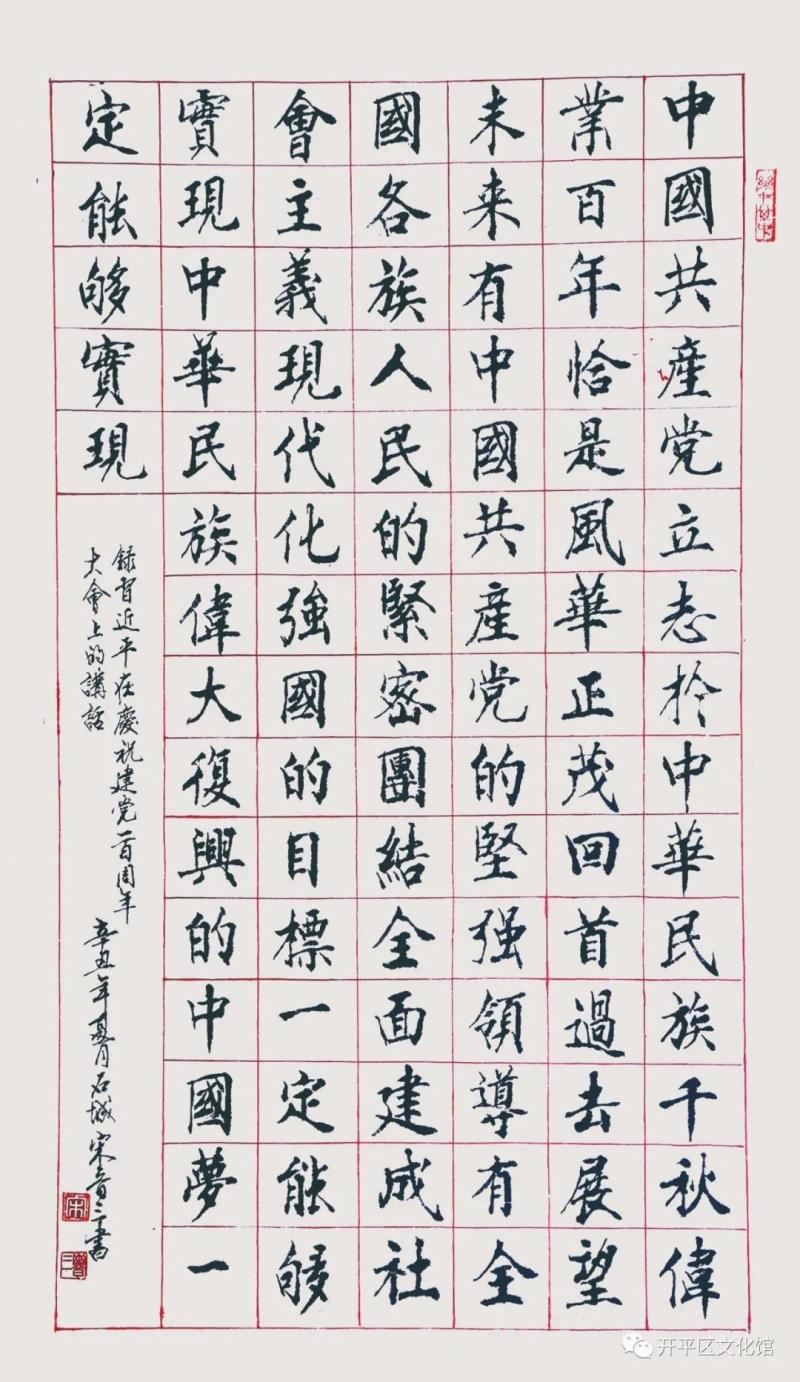 中國共產党立志扵中華民族千秋偉
業百年恰是風華正茂回首過去展望
未来有中國共產党的堅强領導有全
國各族人民的緊密團結全面建成社
會主義現代化強國的目標一定能够
實現中華民族偉大復興的中國夢一
定能够實現
録習近平在慶祝建党一百周年
大會上的講話
辛丑年夏月石城宋
書
开平区文化馆